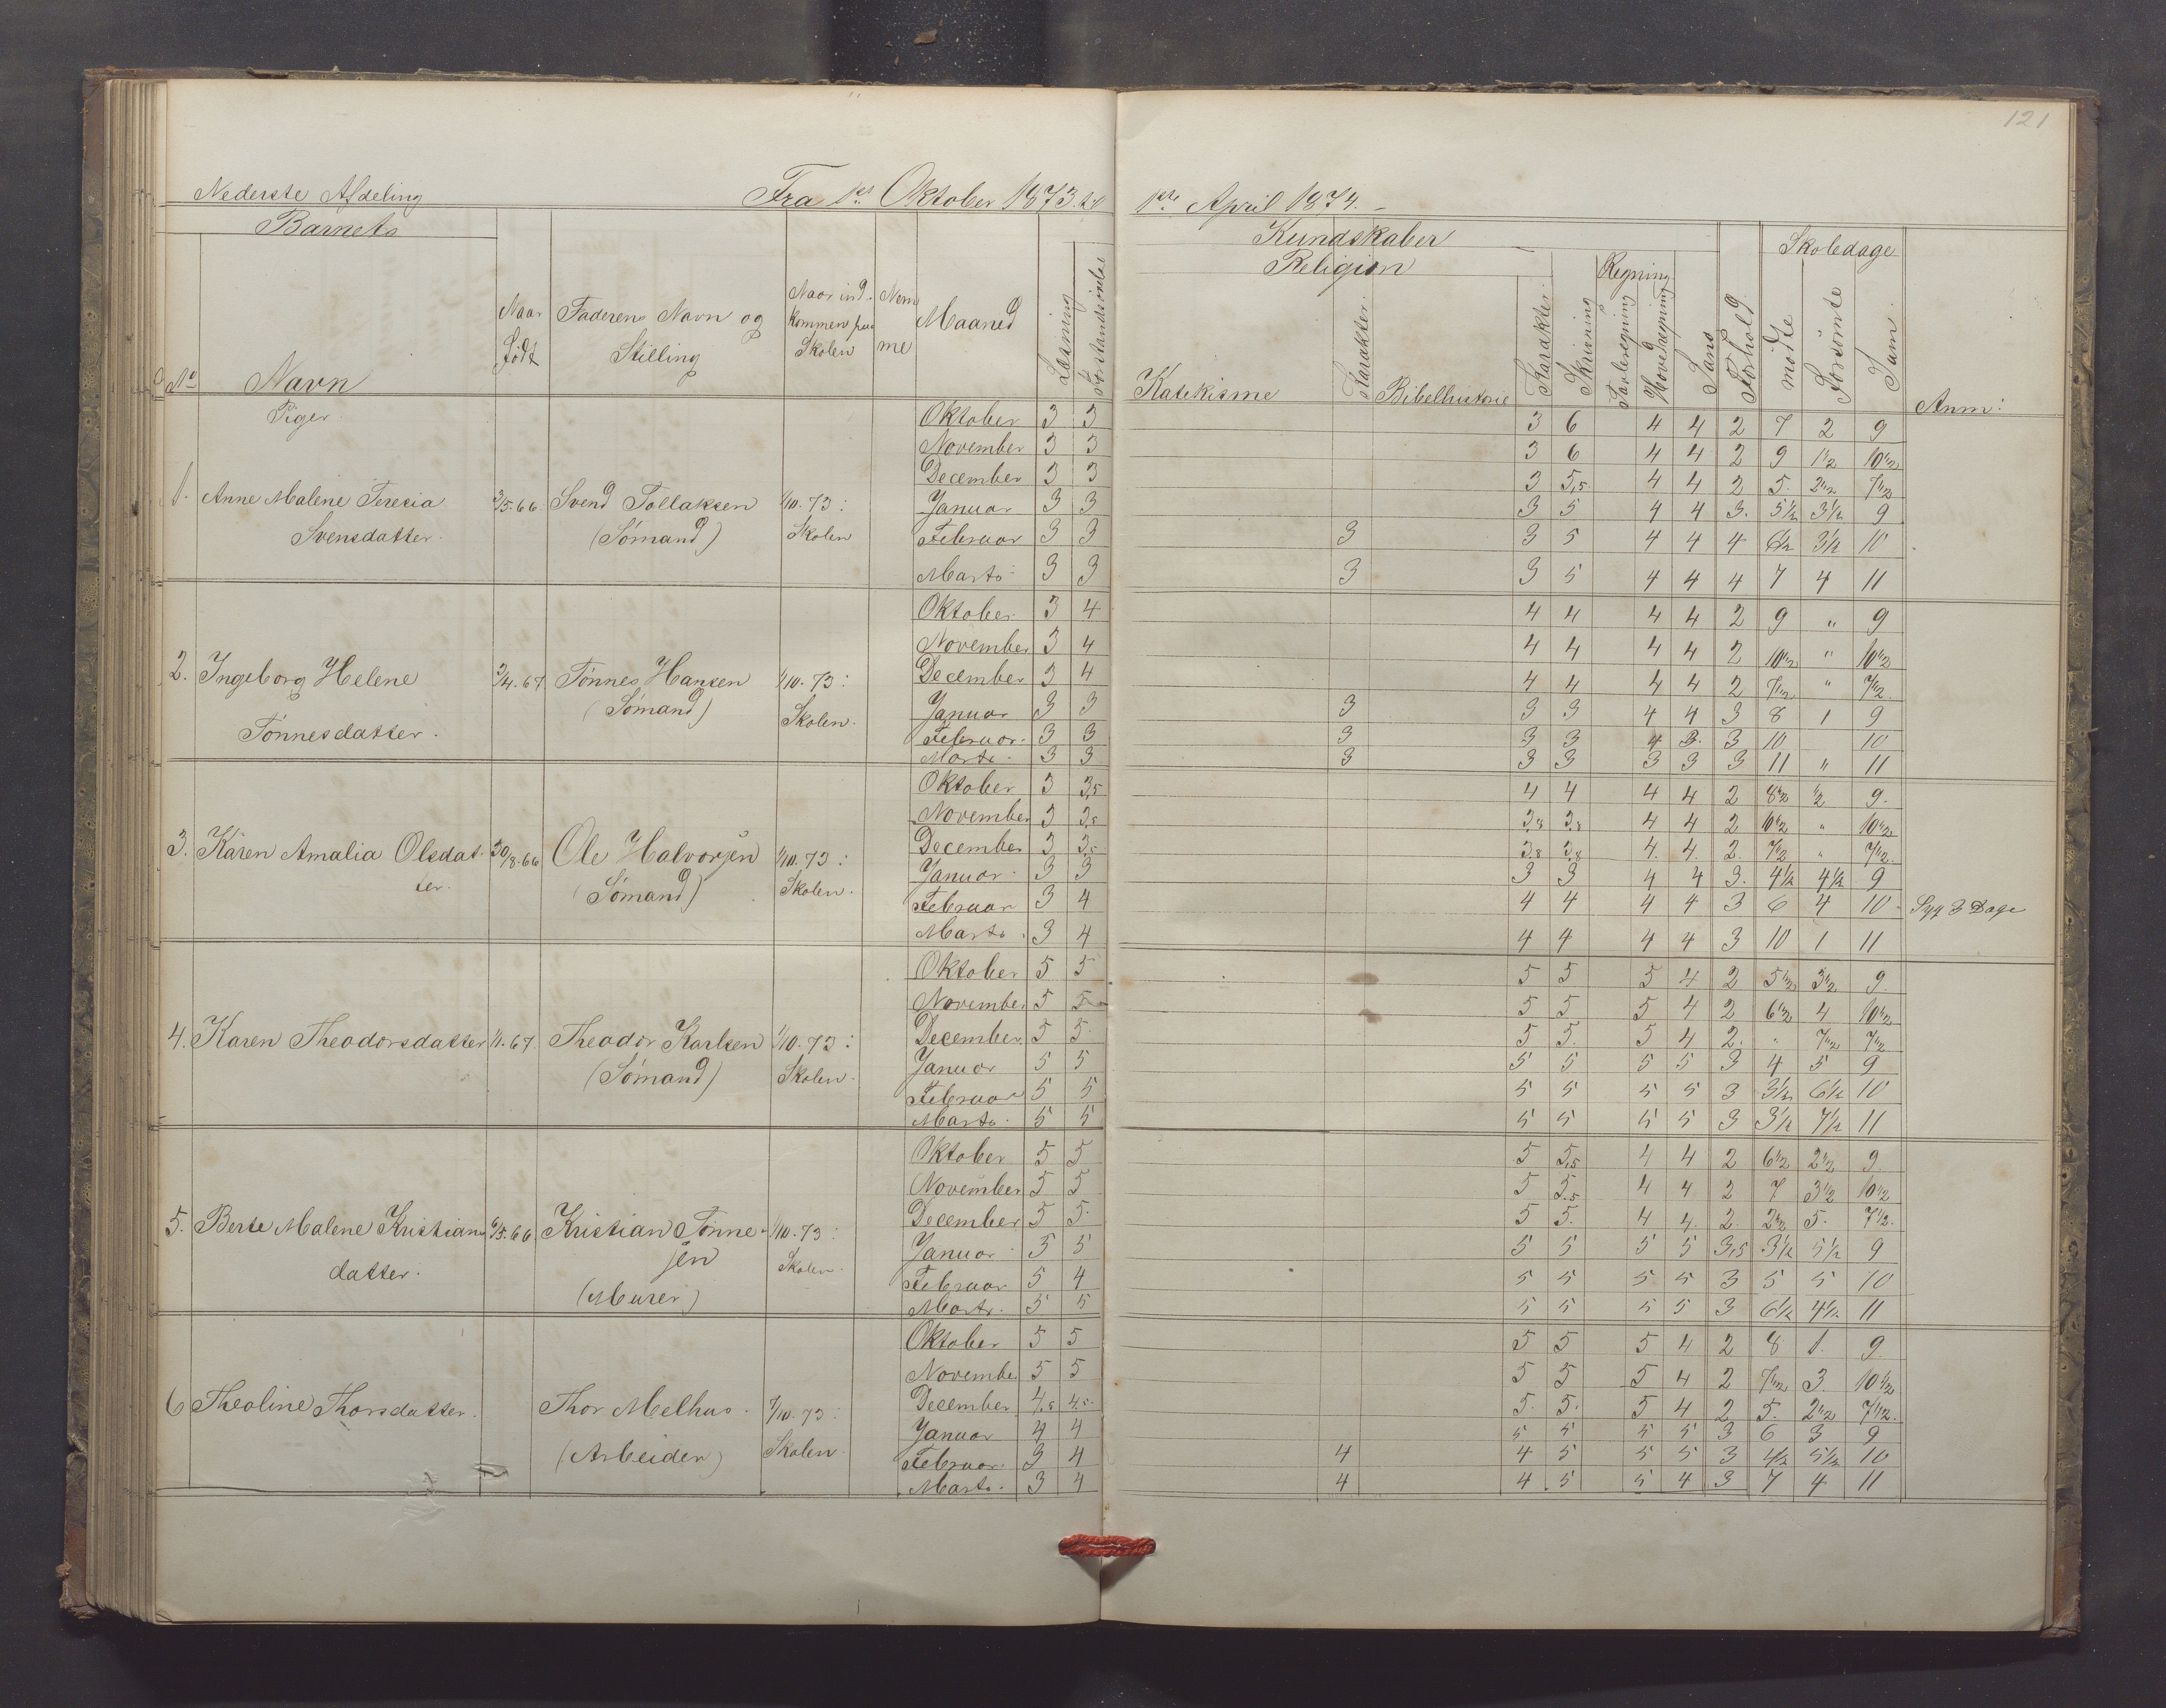 121
Nederste Afdeling Fra 1ste Oktober 1873 til 1ste April 1874.
Barnets Kundskaber Skoledage
Religion Regning
No Navn Naar Født Faderens Navn og Stilling Naar indkommen paa Skolen Nomme Maaned Læsning Forstandsöwelse Katekisme Karakter. Bibelhistorie Karakter. Skrivning Tavleregning Hovedregning Sans Forhold mödte Forsömte Sum. Anm:
Piger.
1. Anne Malene Teresia Svensdatter. 3/5.66. Svend Tollaksen (Sømand) 1/10.73: Skolen
Oktober 3 3 3 6 4 4 2 7 2 9
November 3 3 3 6 4 4 2 9 1 1/2 10 1/2
December 3 3 3 5,5 4 4 2 5. 2 1/2 7 1/2
Januar 3 3 3 5 4 4 3. 5 1/2 3 1/2 9
Februar 3 3 3 3 5 4 4 4 6 1/2 3 1/2 10
Marts 3 3 3 3 5 4 4 4 7 4 11
2. Ingeborg Helene Tönnesdatter. 3/4.67 Tönnes Hansen (Sömand) 1/10.73: Skolen.
Oktober 3 4 4 4 4 4 2 9 " 9
November 3 4 4 4 4 4 2 10 1/2 " 10 1/2
December 3 4 4 4 4 4 2 7 1/2 " 7 1/2
Januar 3 3 3 3 3 4 4 3 8 1 9
Februar. 3 3 3 3 3 4 3. 3 10 10
Marts. 3 3 3 3 3 3 3 3 11 " 11
3. Karen Amalia Olsdatter. 30/8.66 Ole Halvorsen (Sömand) 1/10.73: Skolen.
Oktober 3 3,5 4 4 4 4 2 8 1/2 1/2 9.
November 3 3,8 3,8 3,8 4 4 2 10 1/2 " 10 1/2
December 3 3,5 3,8 3,8 4. 4. 2. 7 1/2 " 7 1/2
Januar 3 3 3 3 4 4 3. 4 1/2 4 1/2 9
Februar 3 4 4 4 4 4 3 6 4 10 Syg 3 Dage
Marts 3 4 4 4 4 4 3 10 1 11
4. Karen Theodorsdatter 1/1.67. Theodor Karlsen (Sömand) 1/10.73: Skolen.
Oktober 5 5 5 5 5 4 2 5 1/2 3 1/2 9.
November 5 5 5 5 5 4 2 6 1/2 4 10 1/2
December 5 5 5 5. 5 4 2. " 7 1/2 7 1/2
Januar 5 5 5 5 5 5 3 4 5 9
Februar 5 5 5 5 5 5 3 3 1/2 6 1/2 10
Marts 5 5 5 5 5 5 3 3 1/2 7 1/2 11
5. Berte Malene Kristiansdatter. 6/5.66 Kristian Tönnesen (Murer) 1/10.73: Skolen.
Oktober 5 5 5 5,5 4 4 2 6 1/2 2 1/2 9
November 5 5 5 5,5 4 4 2 7 3 1/2 10 1/2
December 5 5 5 5. 4 4. 2. 2 1/2 5. 7 1/2.
Januar 5 5 5 5 5 5 3,5 3 1/2 5 1/2 9
Februar 5 4 5 5 5 5 3 5 5 10
Marts. 5 5 5 5 5 5 3 6 1/2 4 1/2 11
6 Theoline Thorsdatter. Thor Melhus. (Arbeider) 1/10.73: Skolen.
Oktober 5 5 5 5 5 4 2 8 1. 9
November 5 5 5 5 5 4 2 7 1/2 3. 10 1/2
December 4,5 4,5 5. 5. 5 4 2 5. 2 1/2 7 1/2.
Januar 4 4 5 5 5 5 3 6 3 9
Februar. 3 4 4 4 5 5 5 3 4 1/2 5 1/2 10
Marts. 3 4 4 4 5 5 4 3 7 4 11